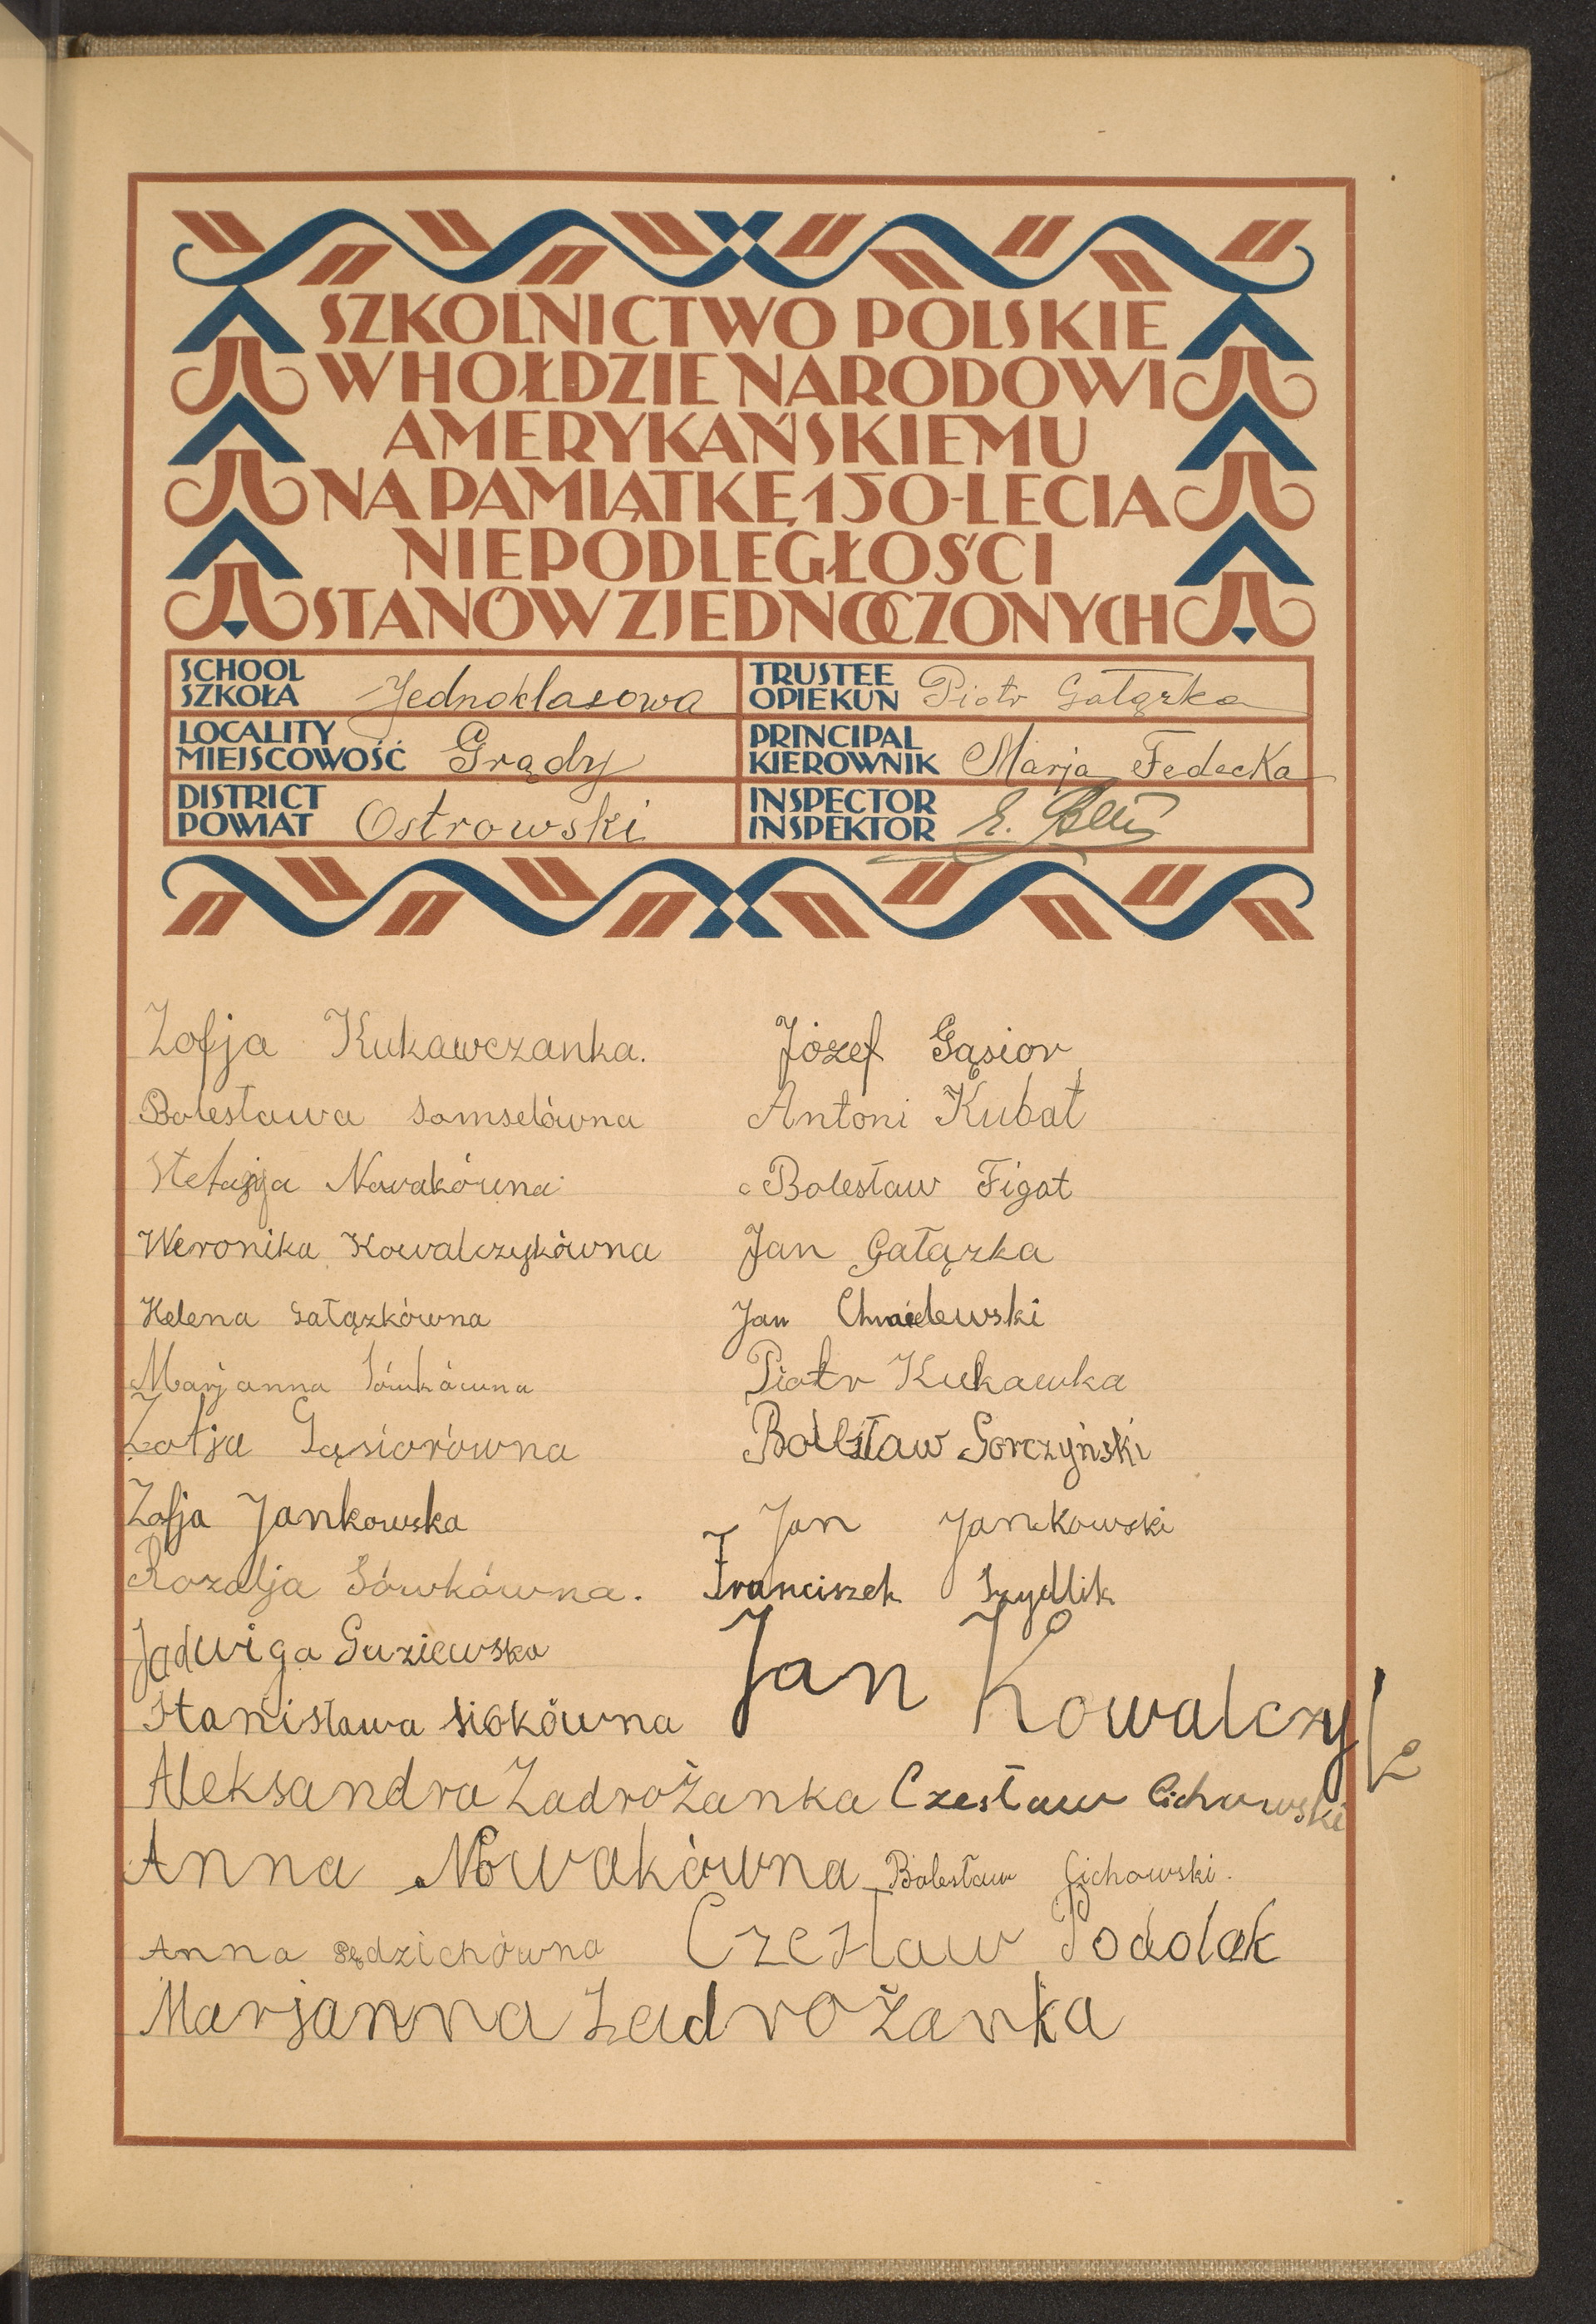 SZKOLNICTWO POLSKIE
W HOŁDZIE NARODOWI
AMERYKAŃSKIEMU
NA PAMIĄTKĘ 150-LECIA
NIEPODLEGŁOŚCI
STANÓW ZJEDNOCZONYCH
SCHOOL
SZKOŁA Jednoklasowa
TRUSTEE
OPIEKUN Piotr Gałązka
LOCALITY
MIEJSCOWOŚĆ Grądy
PRINCIPAL
KIEROWNIK Marja Fedecka
DISTRICT
POWIAT Ostrowski
INSPECTOR
INSPEKTOR E.
Zofja Kukawczanka.
Bolesława Samselówna
Stefanja Nowakówna
Weronika Kowalczykówna
Helena Gałązkówna
Marjanna Sówkówna
Zofja Gąsiorówna
Zofja Jankowska
Rozalja Sówkówna.
Jadwiga Guziewska
Stanisława Siokówna
Aleksandra Zadrożanka
Anna Nowakówna
Anna Sędzichówna
Marjanna Zadrożanka
Józef Gąsior
Antoni Kubat
Bolesław Figat
Jan Gałązka
Jan Chmielewski
Piotr Kukawka
Bolesław Gorczyński
Jan Jankowski
Franciszek Szydlik
Jan Kowalczyk
Czesław Cichowski
Bolesław Cichowski.
Czesław Podolak